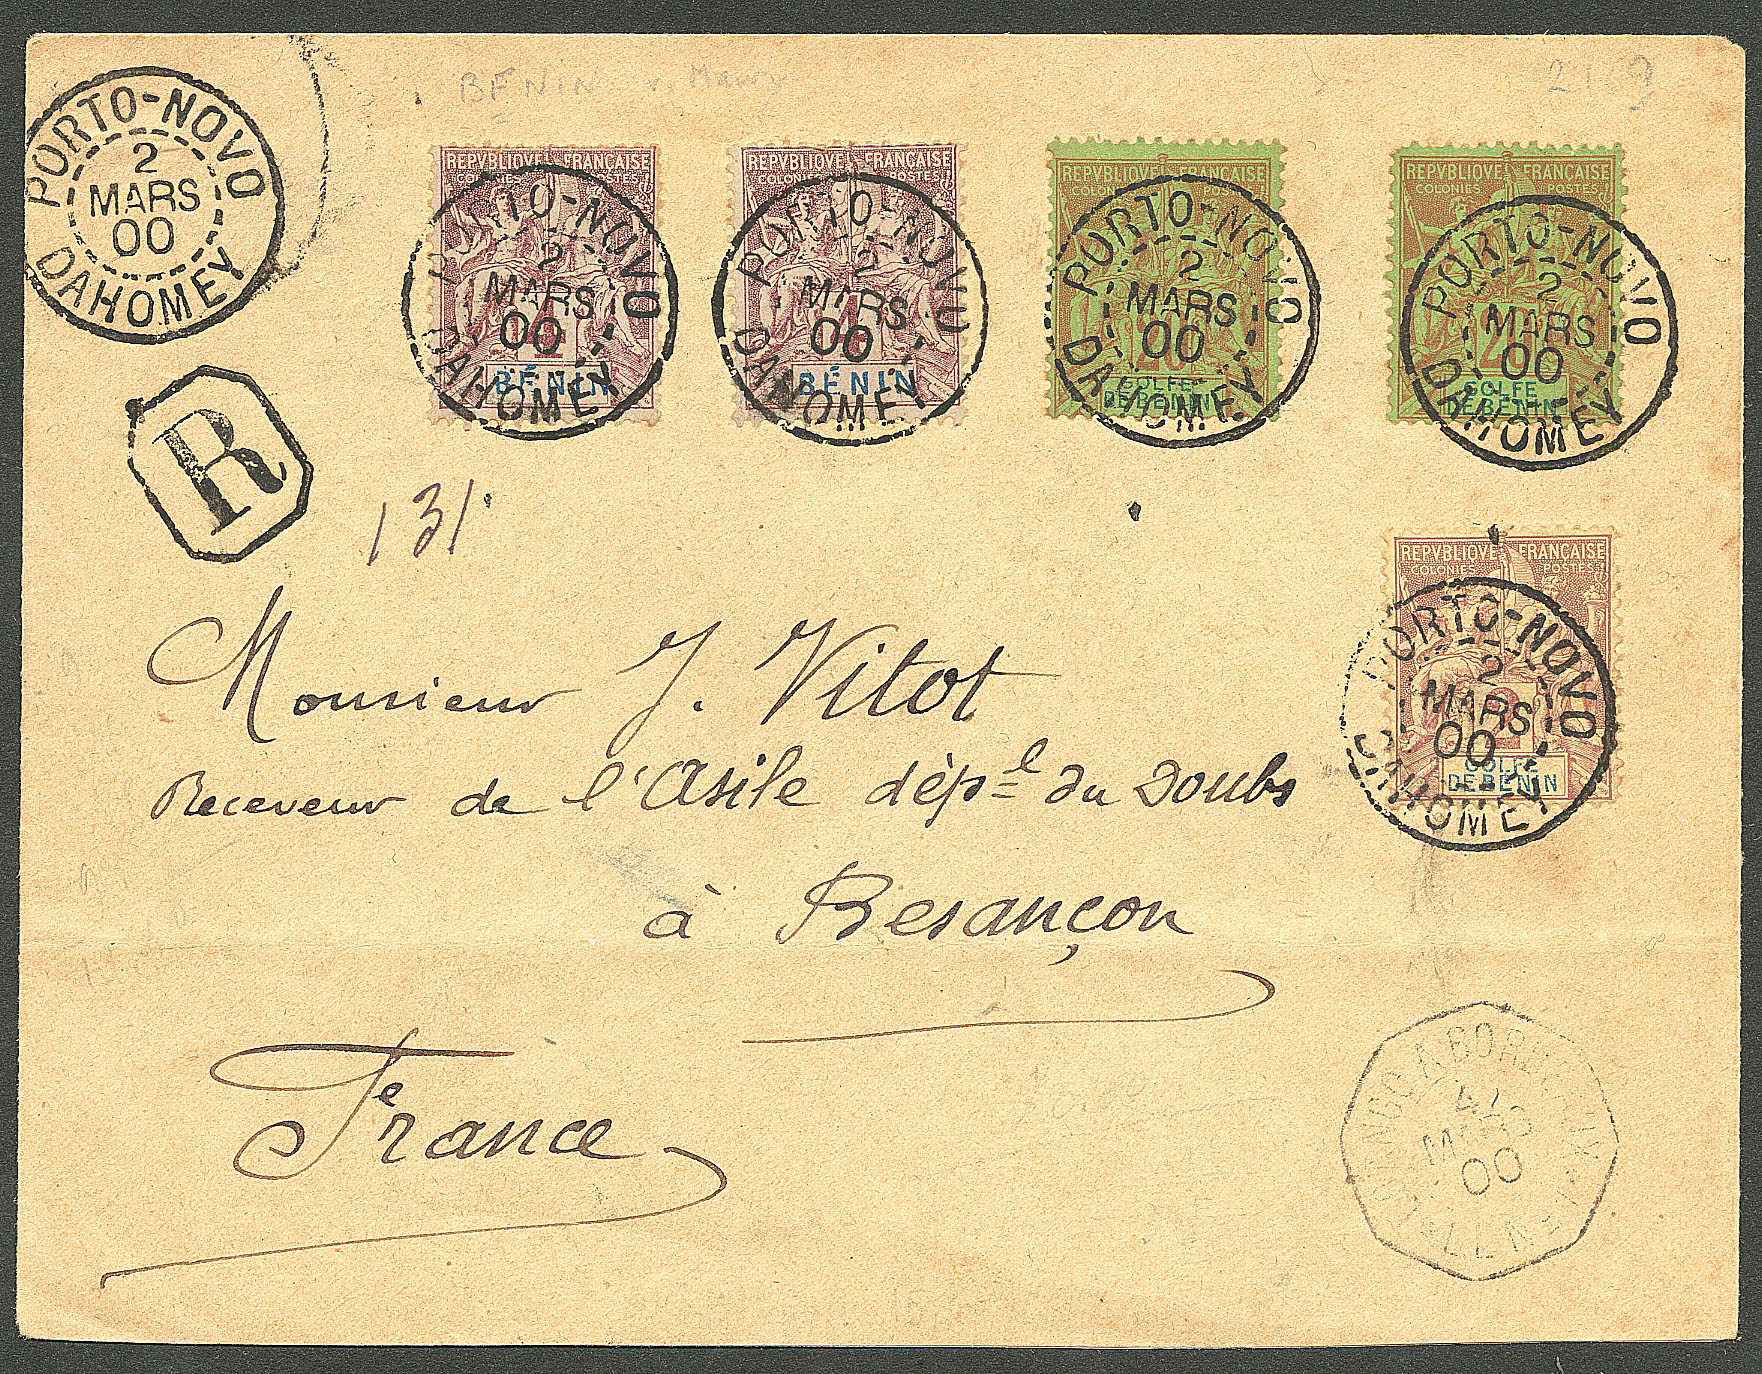 BÉNIN
PORTO-NOVO
2
MARS
00
DAHOMEY
REPVBLIQVE FRANÇAISE
COLONIES POSTES
4
BÉNIN
PORTO-NOVO
2
MARS
00
DAHOMEY
REPVBLIQVE FRANÇAISE
COLONIES POSTES
4
BÉNIN
PORTO-NOVO
2
MARS
00
DAHOMEY
REPVBLIQVE FRANÇAISE
COLONIES POSTES
20
GOLFE
DE BÉNIN
PORTO-NOVO
2
MARS
00
DAHOMEY
REPVBLIQVE FRANÇAISE
COLONIES POSTES
20
GOLFE
DE BÉNIN
PORTO-NOVO
2
MARS
00
DAHOMEY
R
131
REPVBLIQVE FRANÇAISE
COLONIES POSTES
2
GOLFE
DE BÉNIN
PORTO-NOVO
2
MARS
00
DAHOMEY
Monsieur J. Vitot
Receveur de l'Asile dép.l du Doubs
à Besançon
France
LOANGO A BORDEAUX
MARS
00